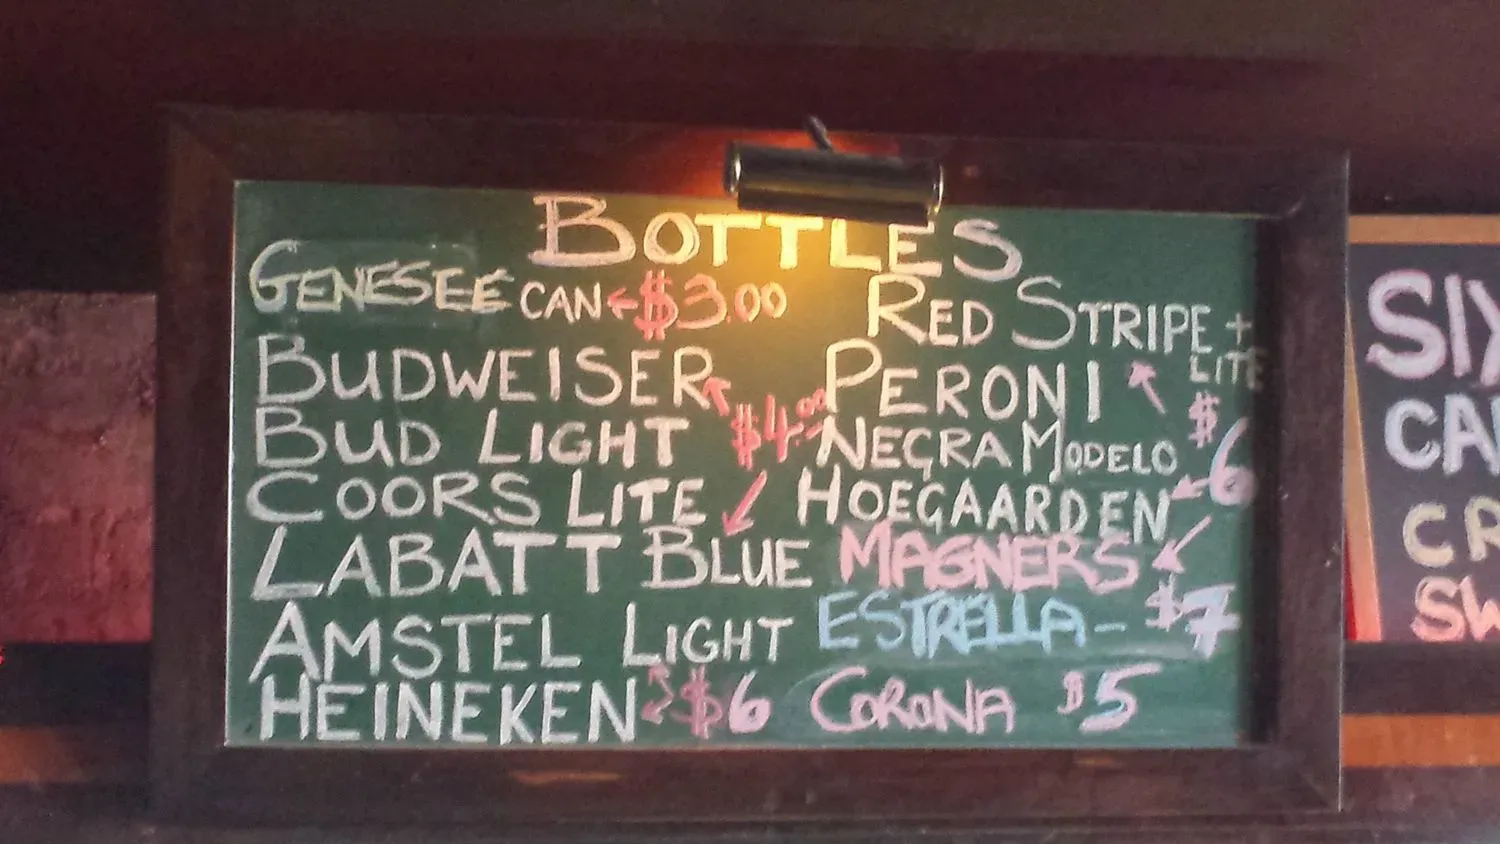 BOTTLES
GENESEE CAN ←$3.00
BUDWEISER
$4.00
BUD LIGHT
COORS LITE
LABATT BLUE
AMSTEL LIGHT
HEINEKEN $6
RED STRIPE +
LITE
PERONI
NEGRA MODELO
$6
HOEGAARDEN
MAGNERS
ESTRELLA - $7
CORONA $5
SIX
CA
CR
SW